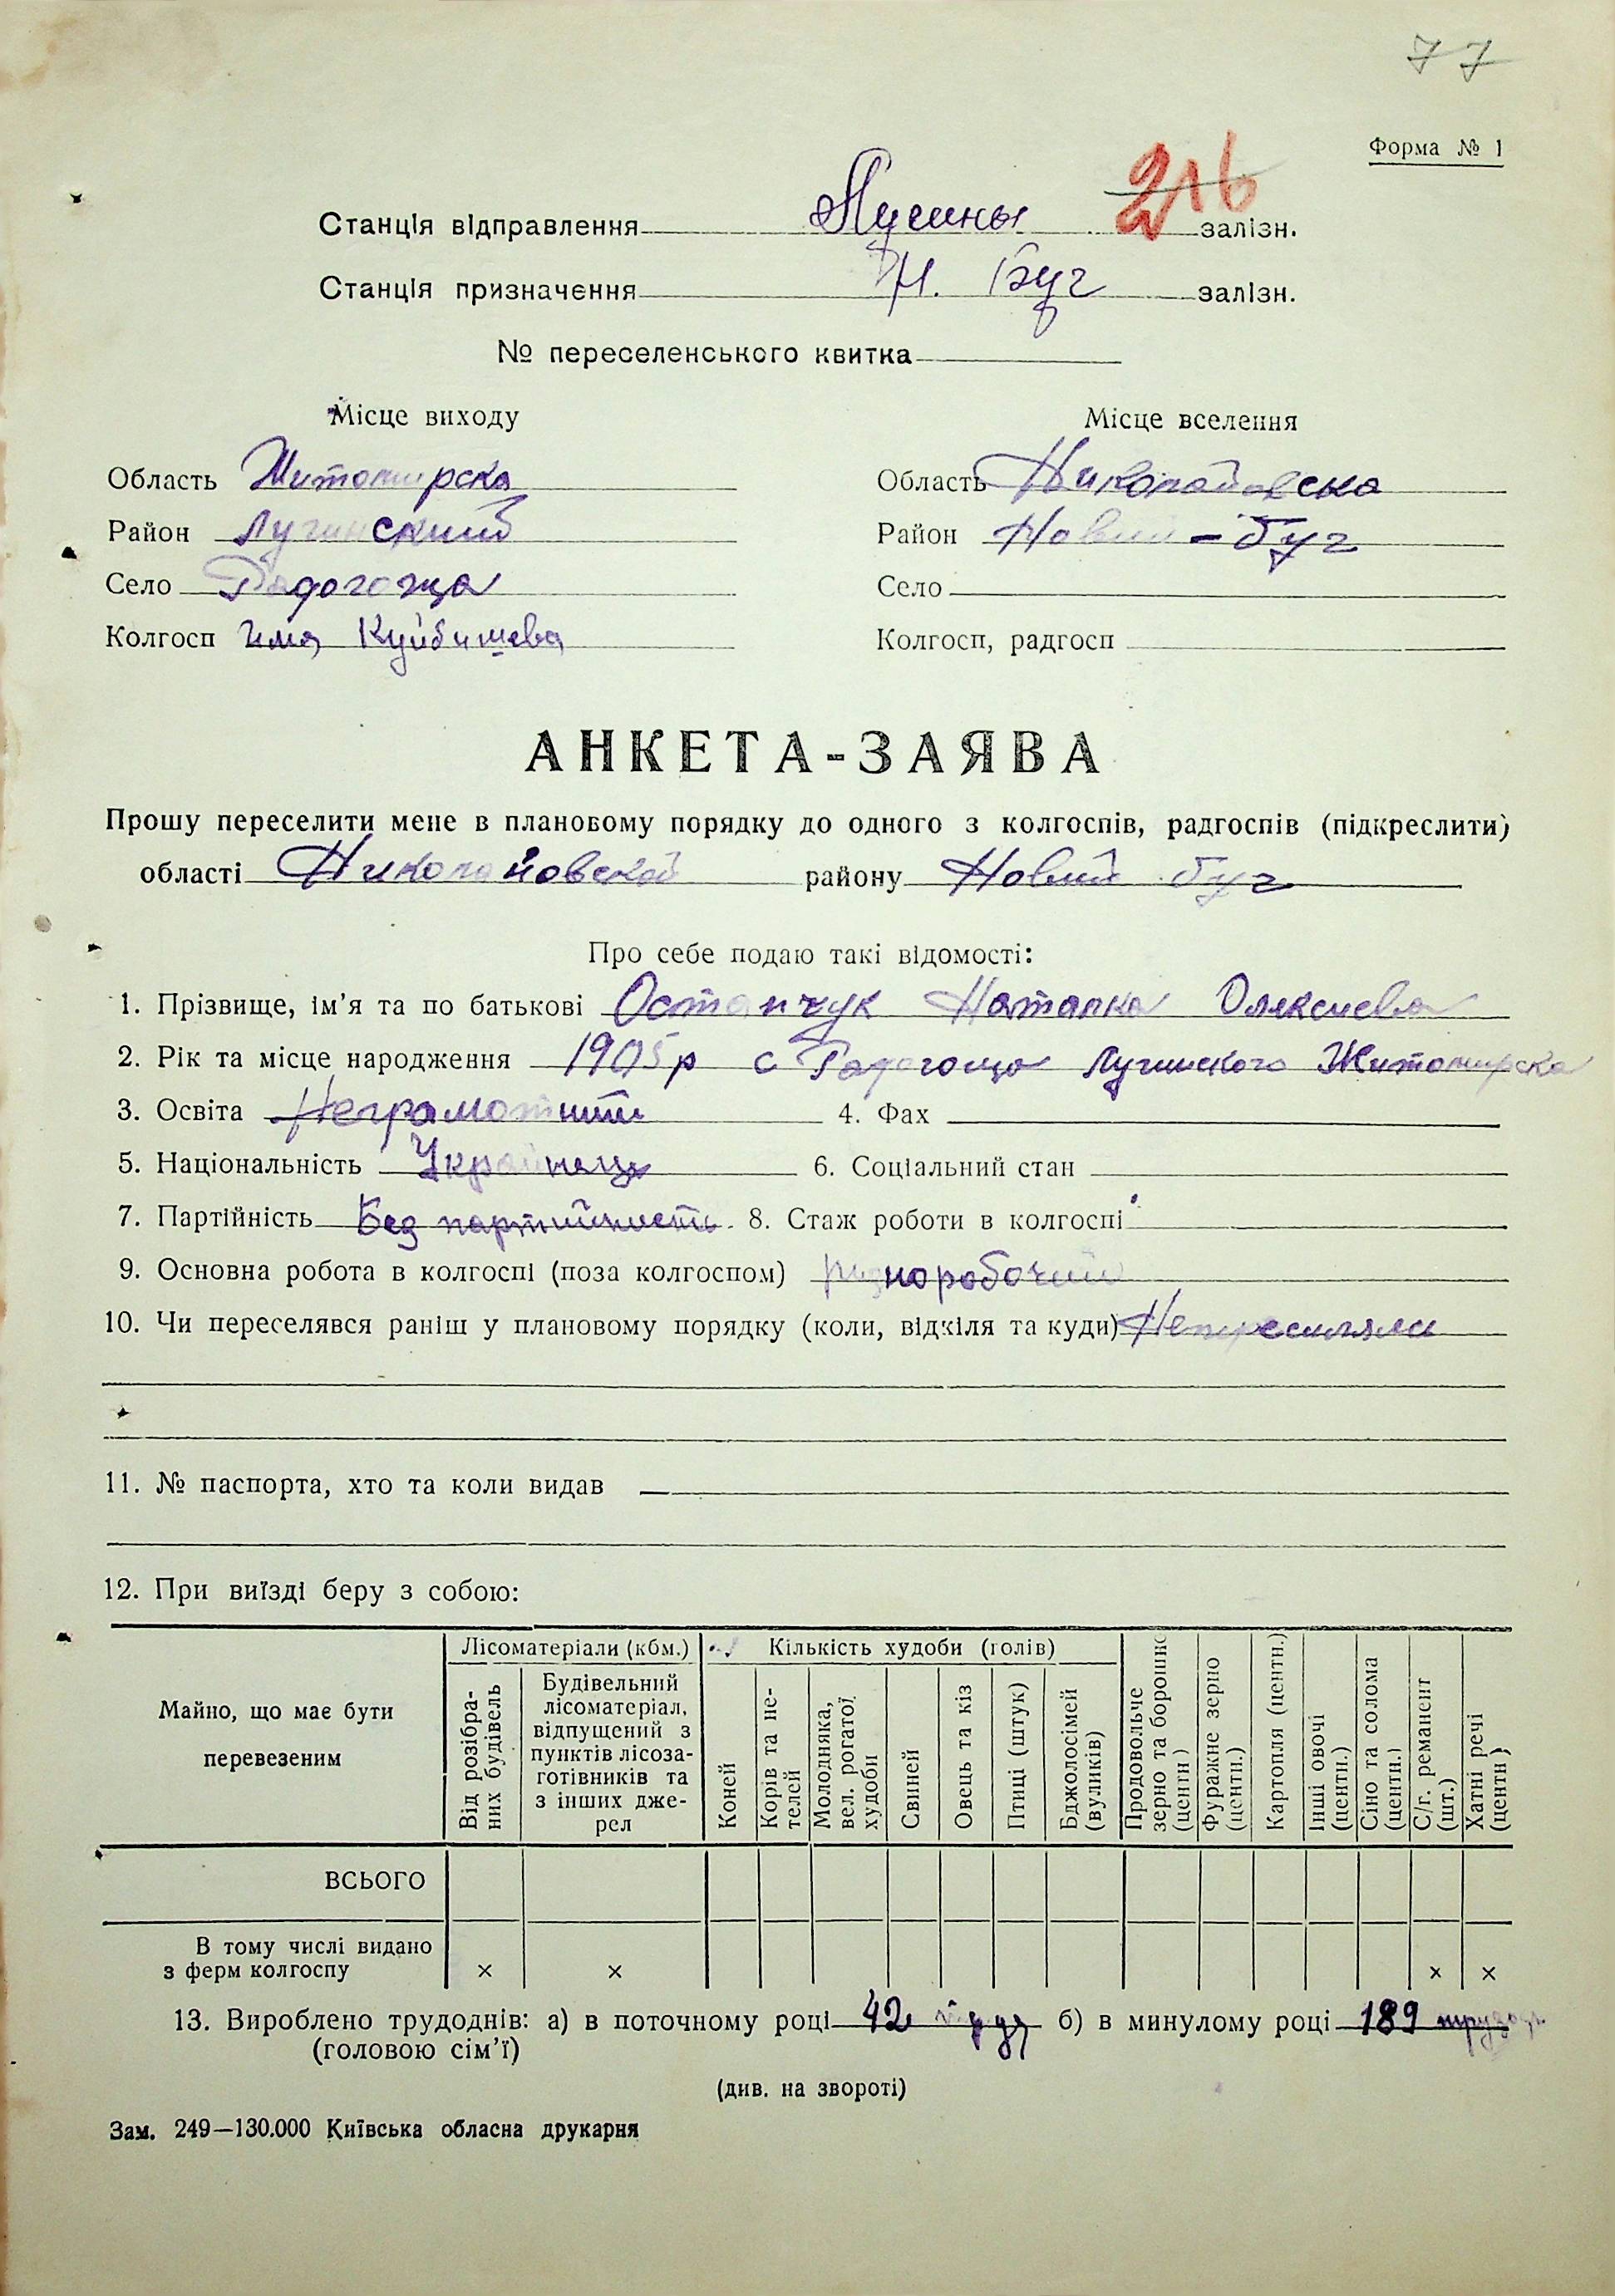 77
Форма № 1
216
Станція відправлення Лугины залізн.
Станція призначення Н. Буг залізн.
№ переселенського квитка
Місце виходу
Область Житомирска
Район Лугинский
Село Радогоща
Колгосп Имя Куйбишева
Місце вселення
Область Николайовска
Район Новий-буг
Село
Колгосп, радгосп
АНКЕТА-ЗАЯВА
Прошу переселити мене в плановому порядку до одного з колгоспів, радгоспів (підкреслити)
області Николайовской району Новий буг
Про себе подаю такі відомості:
1. Прізвище, ім'я та по батькові Остапчук Наталка Олексиева
2. Рік та місце народження 1905р с Радогоща Лугинского Житомирска
3. Освіта Неграмотний 4. Фах
5. Національність Українець 6. Соціальний стан
7. Партійність Без партийность 8. Стаж роботи в колгоспі
9. Основна робота в колгоспі (поза колгоспом) разноробочий
10. Чи переселявся раніш у плановому порядку (коли, відкіля та куди)
11. № паспорта, хто та коли видав
12. При виїзді беру з собою:
Майно, що має бути перевезеним
Лісоматеріали (кбм.)
Від розібраних будівель
Будівельний лісоматеріал, відпущений з пунктів лісозаготівників та з інших джерел
Кількість худоби (голів)
Коней
Корів та нетелей
Молодняка, вел. рогатої худоби
Свиней
Овець та кіз
Птиці (штук)
Бджолосімей (вуликів)
Продовольче зерно та борошно (центн)
Фуражне зерно (центн.)
Картопля (центн.)
Інші овочі (центн.)
Сіно та солома (центн.)
С/г. реманент (шт.)
Хатні речі (центн)
ВСЬОГО
В тому числі видано
з ферм колгоспу × × × ×
13. Вироблено трудоднів: а) в поточному році 42 б) в минулому році 189
(головою сім'ї)
(див. на звороті)
Зам. 249—130.000 Київська обласна друкарня